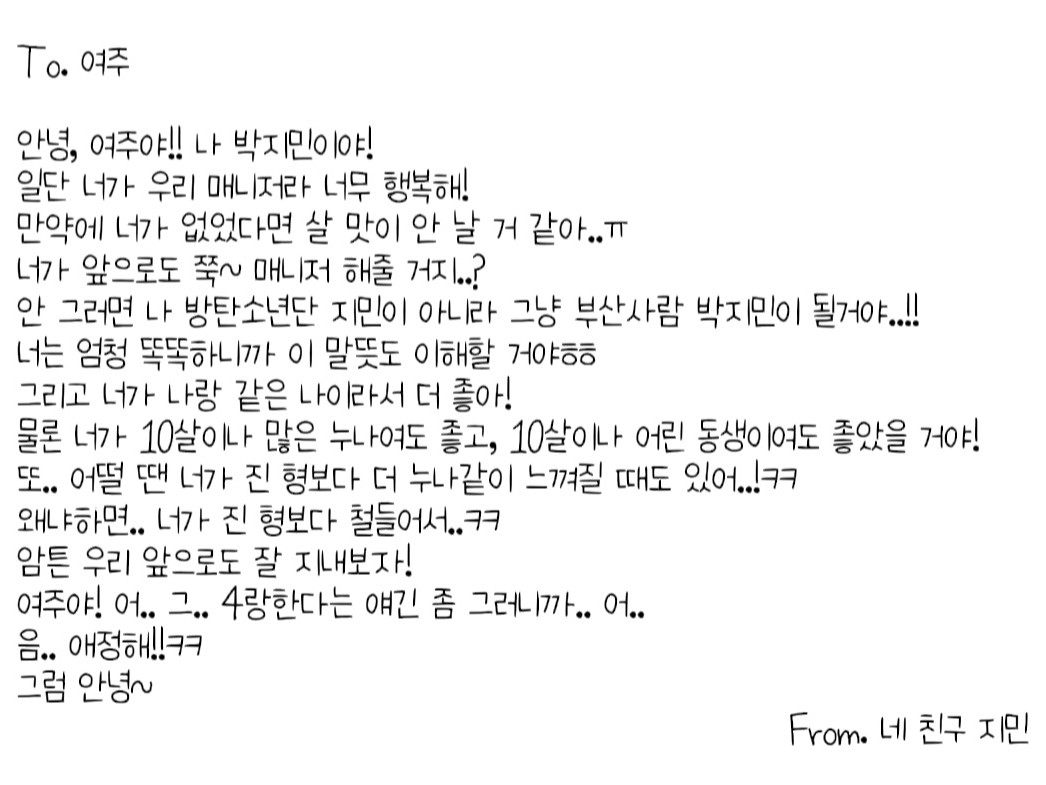 To. 여주
안녕, 여주야!! 나 박지민이야!
일단 너가 우리 매니저라 너무 행복해!
만약에 너가 없었다면 살 맛이 안 날 거 같아..ㅠ
너가 앞으로도 쭉~ 매니저 해줄 거지..?
안 그러면 나 방탄소년단 지민이 아니라 그냥 부산사람 박지민이 될거야...!!
너는 엄청 똑똑하니까 이 말뜻도 이해할 거야ㅎㅎ
그리고 너가 나랑 같은 나이라서 더 좋아!
물론 너가 10살이나 많은 누나여도 좋고, 10살이나 어린 동생이여도 좋았을 거야!
또.. 어떨 땐 너가 진 형보다 더 누나같이 느껴질 때도 있어..!ㅋㅋ
왜냐하면.. 너가 진 형보다 철들어서..ㅋㅋ
암튼 우리 앞으로도 잘 지내보자!
여주야! 어.. 그.. 4랑한다는 얘긴 좀 그러니까.. 어..
음.. 애정해!!ㅋㅋ
그럼 안녕~
From. 네 친구 지민